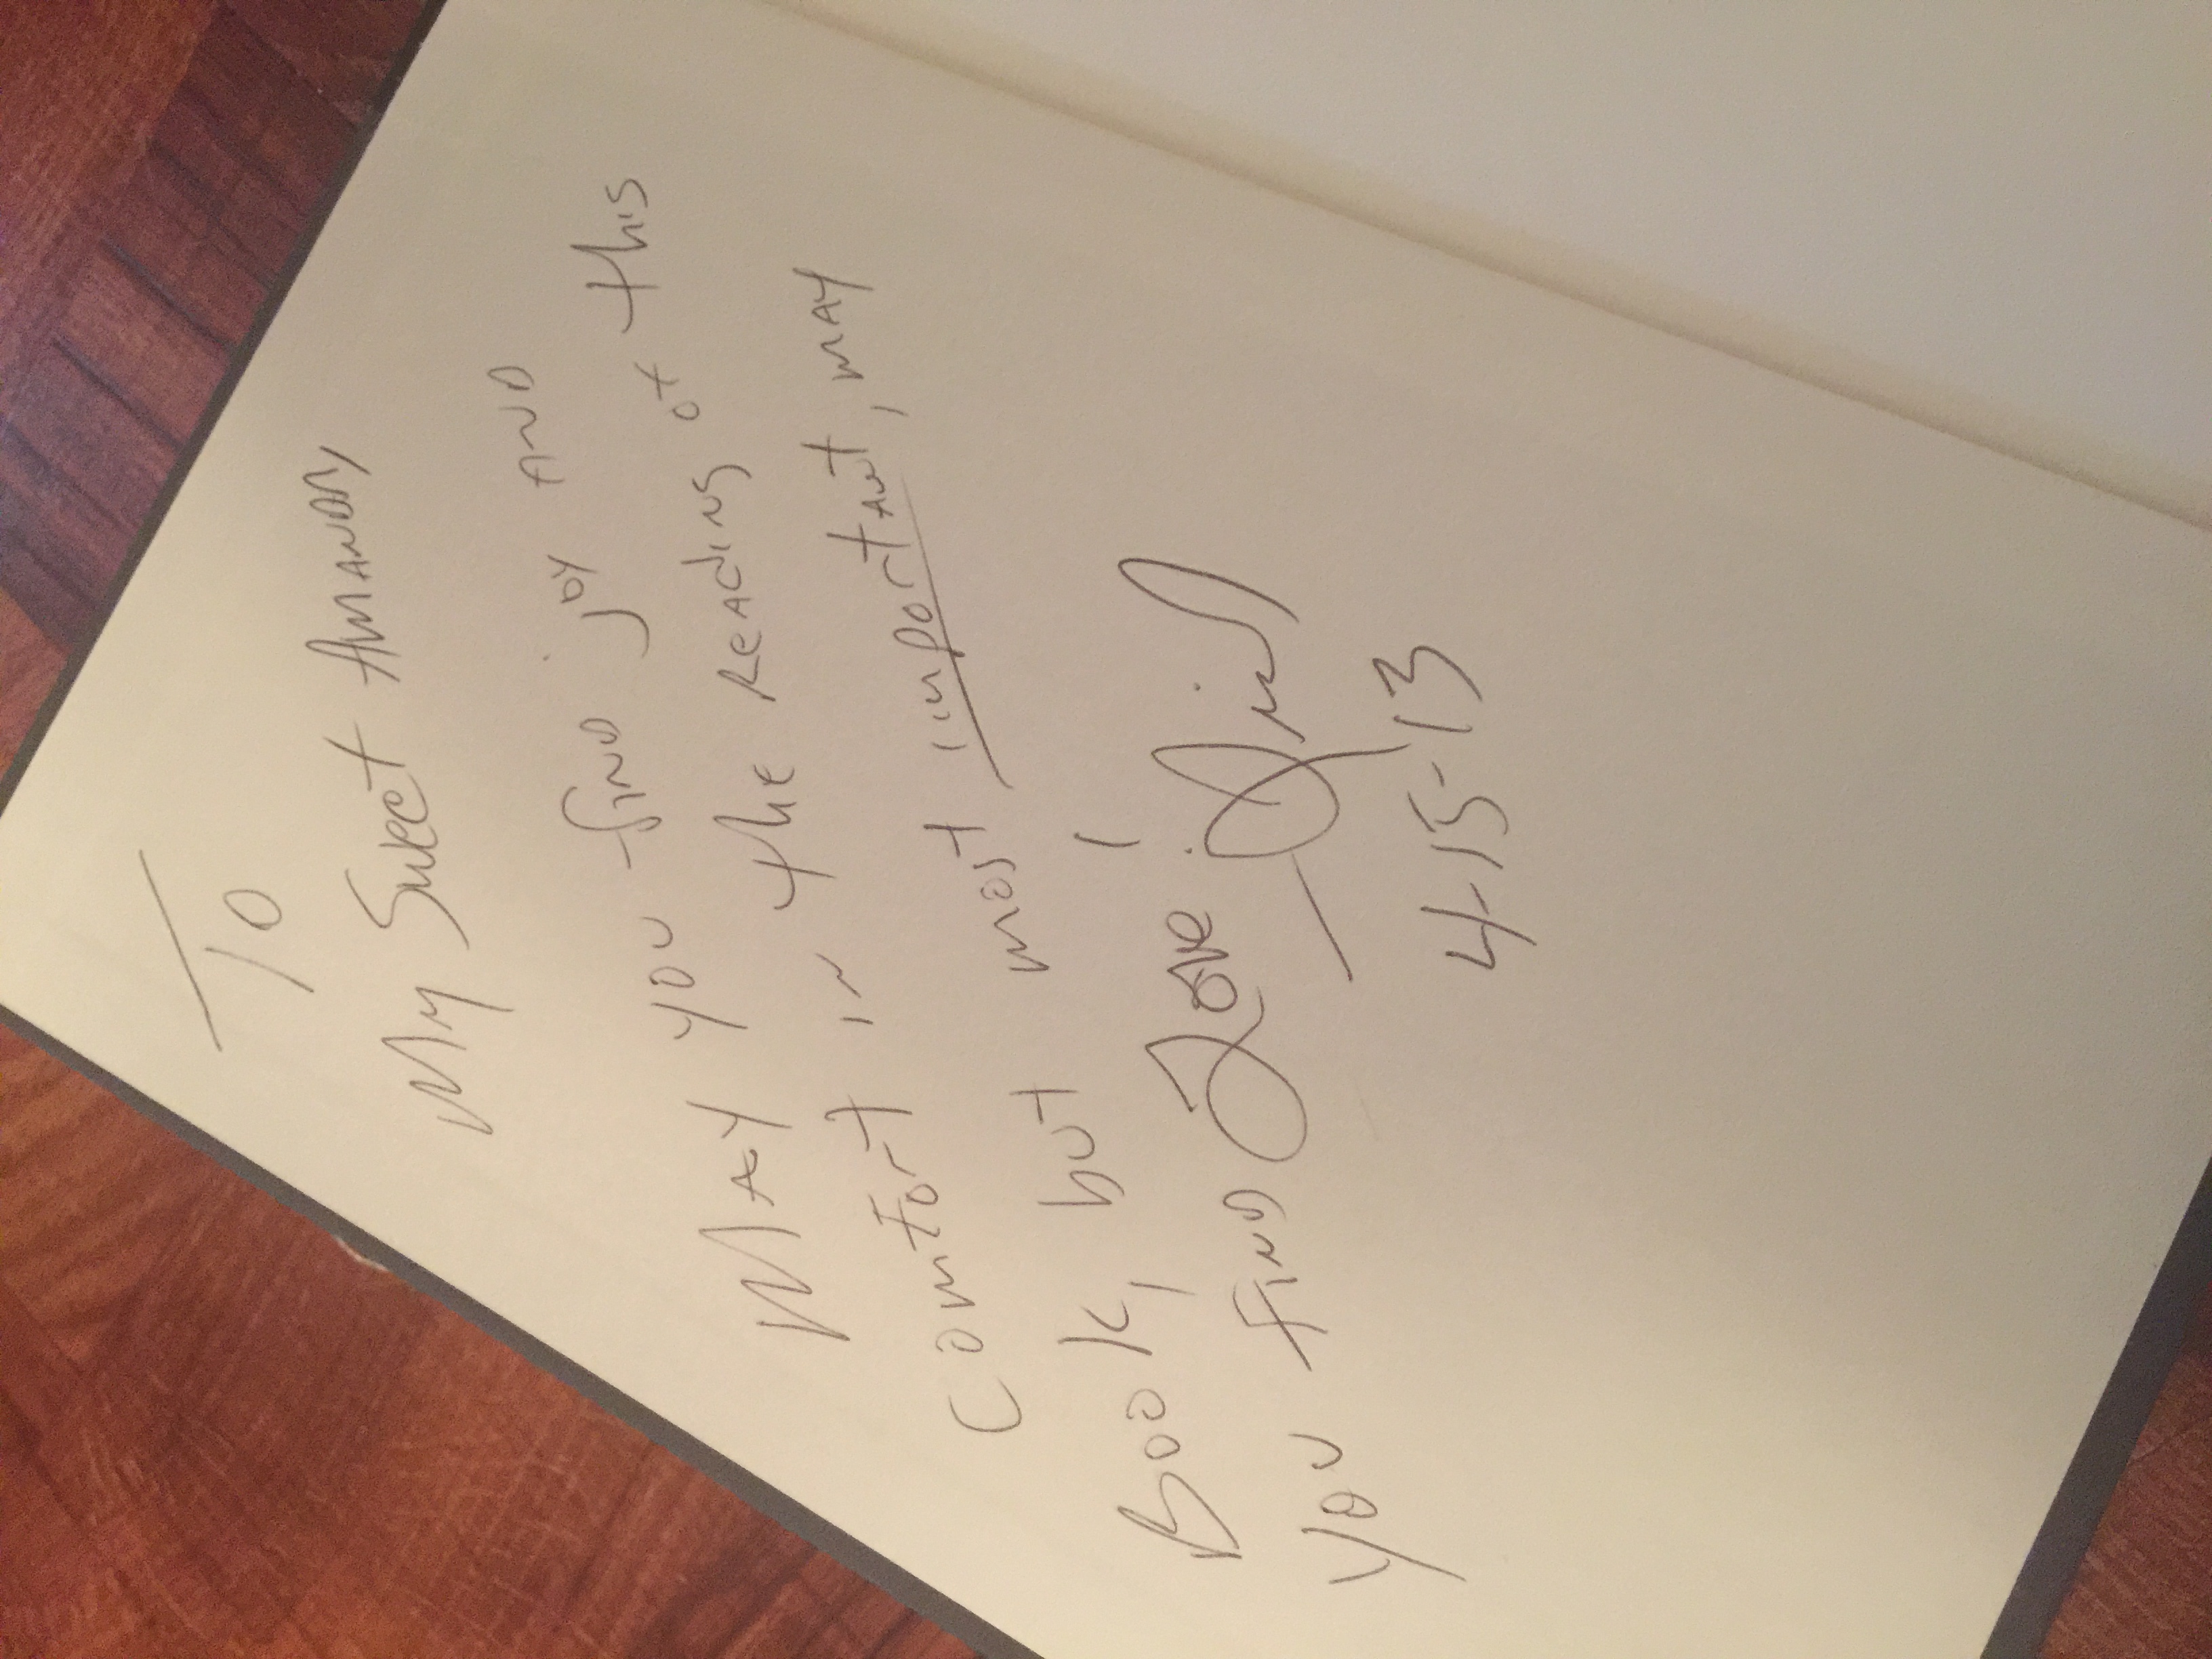 To
My Sweet Amanda,
May you find joy and
Comfort in the reading of this
Book, but most important, may
you find Love!
—
4-15-13